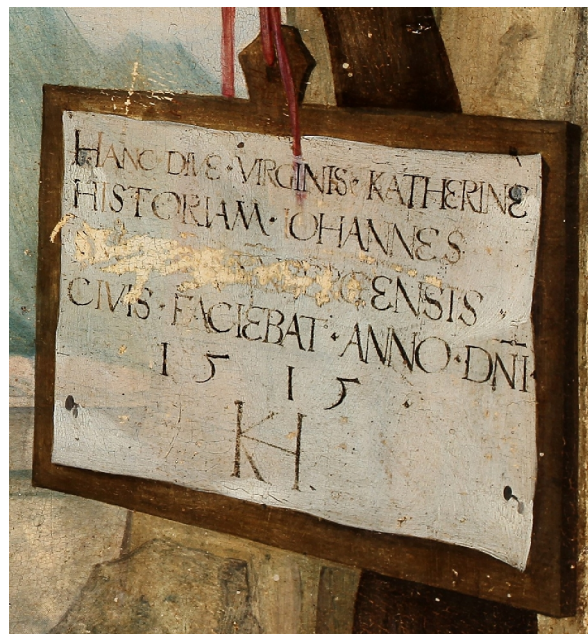 HANC DIVE · VIRGINIS · KATHERINE
HISTORIAM · IOHANNES
CIVIS · FACIEBAT · ANNO · DNĪ ·
1515
HK